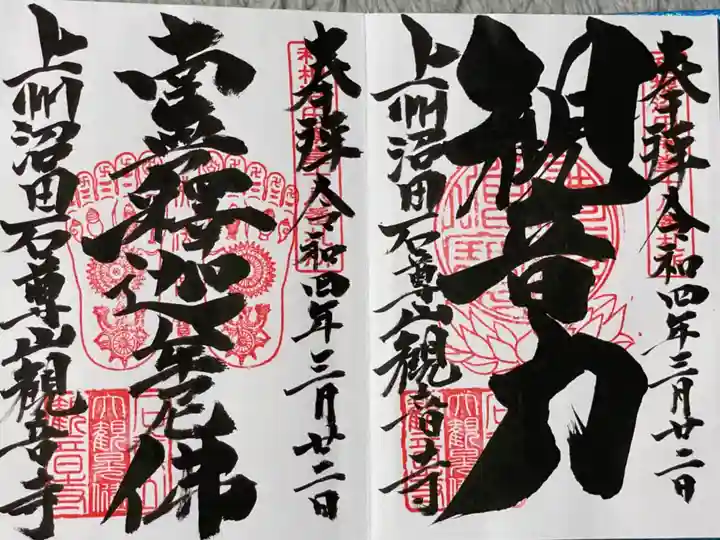 奉拝 令和四年三月廿二日
観音力
上州沼田石尊山観音寺
奉拝 令和四年三月廿二日
釋迦牟尼佛
上州沼田石尊山観音寺